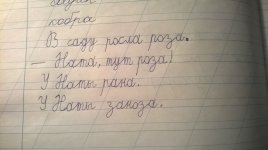 кобра
В саду росла роза.
— Ната, тут роза!
У Наты рана.
У Наты заноза.